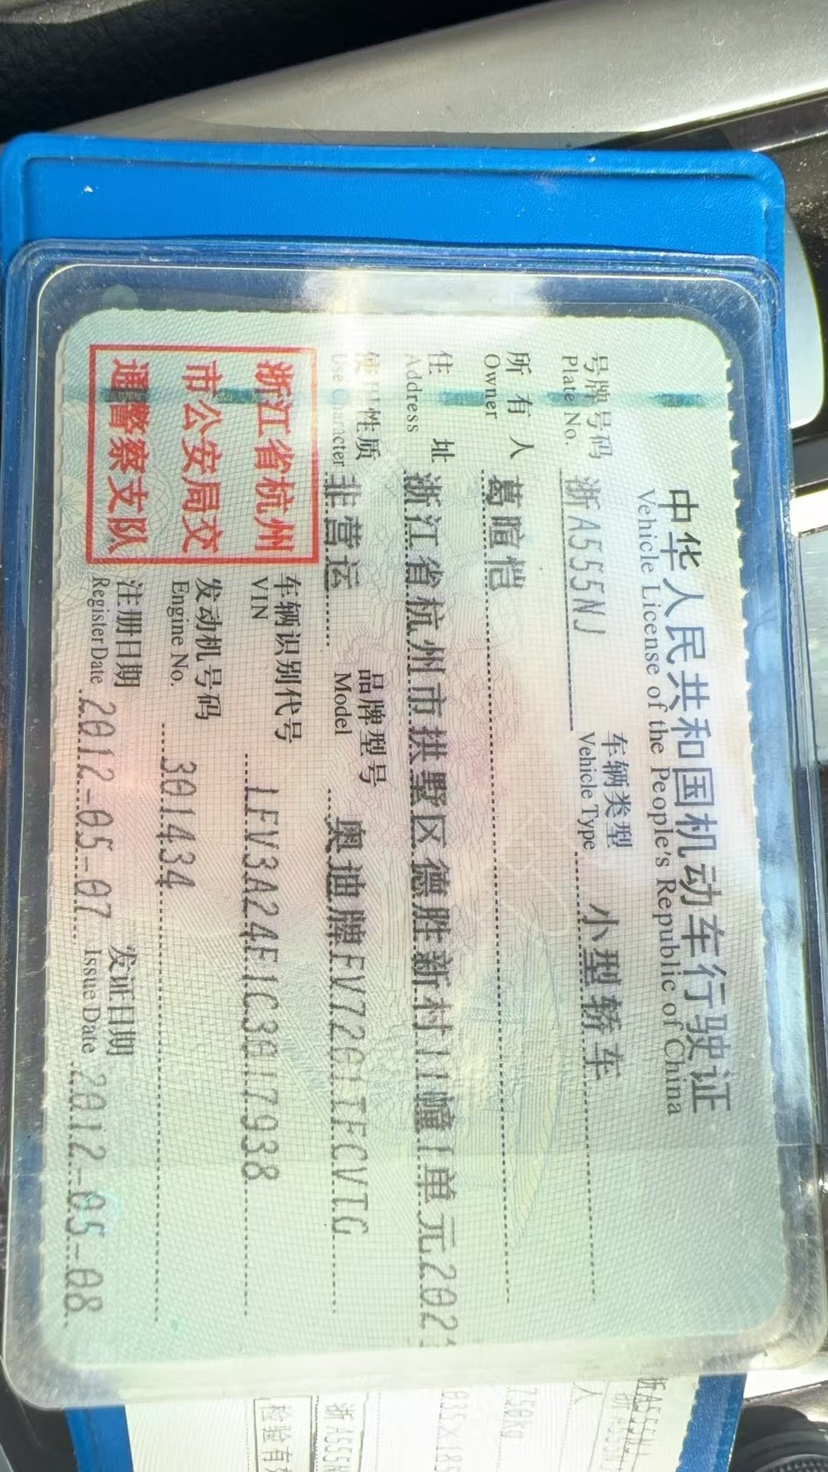 中华人民共和国机动车行驶证
Vehicle License of the People's Republic of China
号牌号码 浙A555NJ 车辆类型 小型轿车
Plate No. Vehicle Type
所有人 葛暄恺
Owner
住址 浙江省杭州市拱墅区德胜新村11幢1单元202
Address
使用性质 非营运 品牌型号 奥迪牌FV7201TFCVTG
Use Character Model
浙江省杭州
市公安局交
通警察支队
车辆识别代号 LFV3A24F1C3017938
VIN
发动机号码 301434
Engine No.
注册日期 2012-05-07 发证日期 2012-05-08
Register Date Issue Date
浙A555N
人
浙A555N
检验有